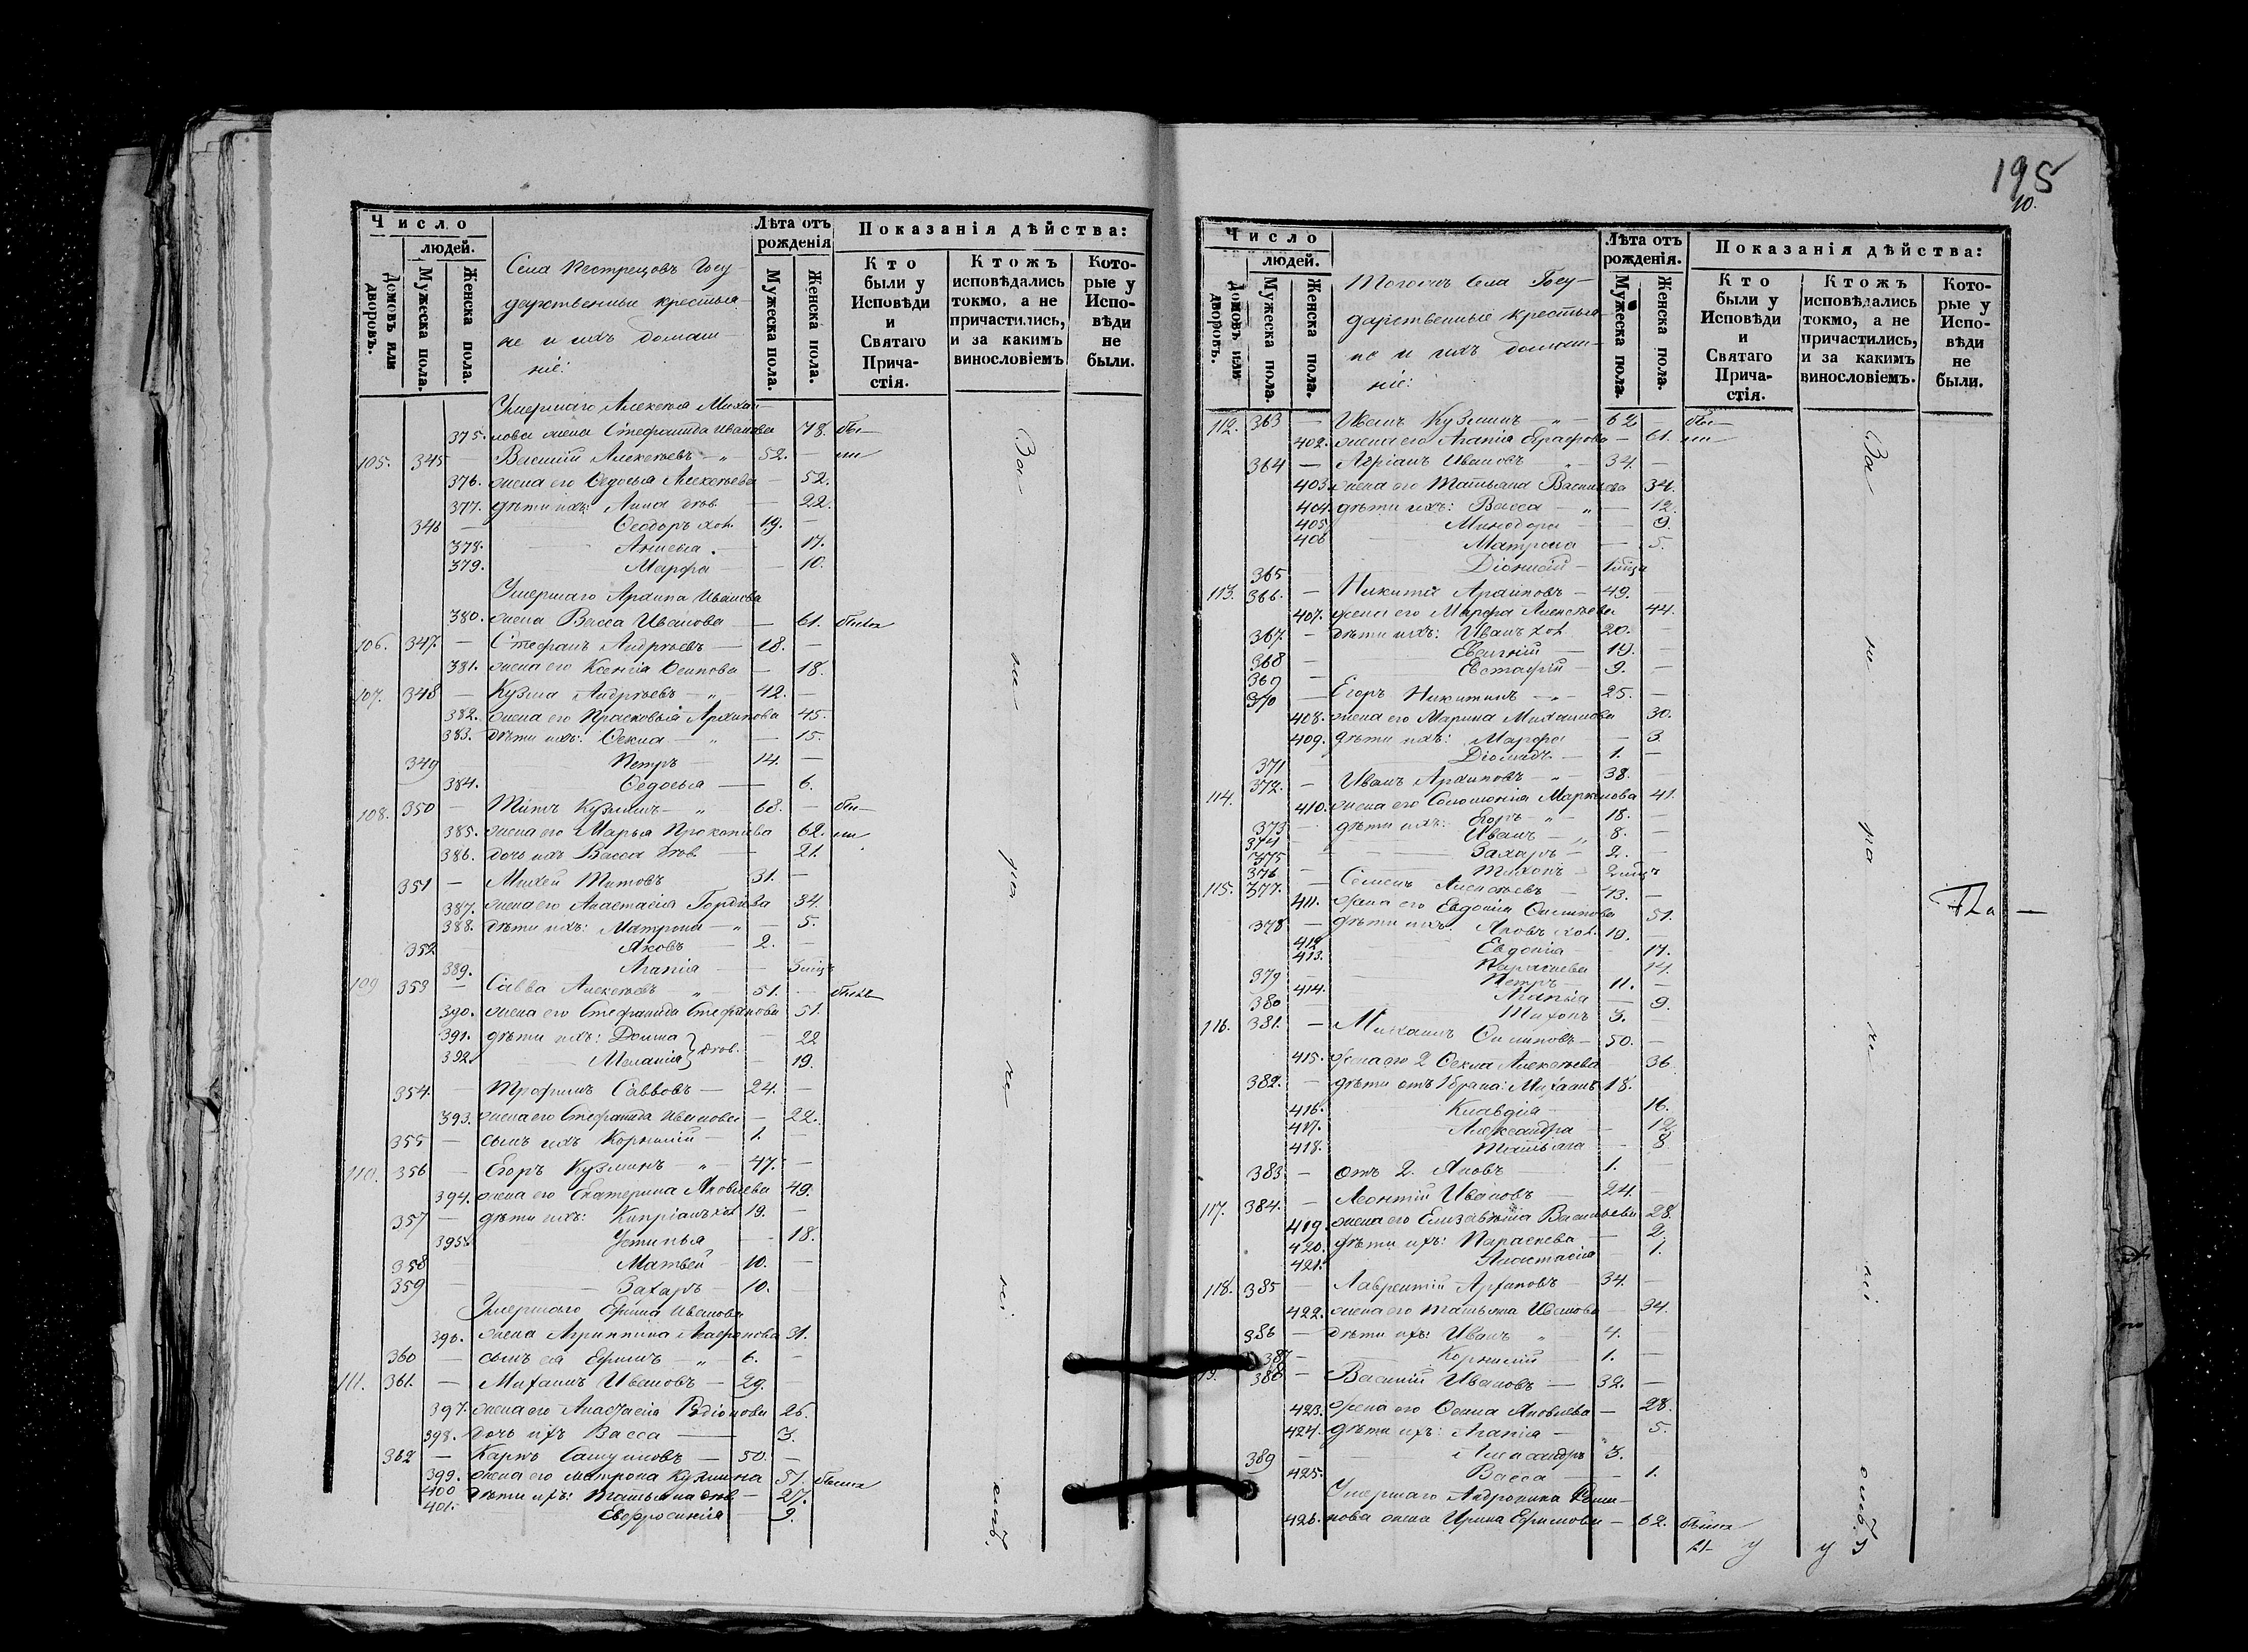 Число
людей.
Домовъ или дворовъ.
Мужеска пола.
Женска пола.
Села Пестрецовъ Госу-
дарственные крестья-
не и ихъ домаш-
ніе:
Лѣта отъ рожденія
Мужеска пола.
Женска пола.
Показанія дѣйства:
Кто были у Исповѣди и Святаго Прича-стія.
Ктожъ исповѣдались токмо, а не причастились, и за какимъ винословіемъ
Кото-рые у Испо-вѣди не были.
Умершаго Алексѣя Михаи-
375. лова жена Стефанида Иванова — 78. бы—
105. 345 — Василій Алексѣевъ — „ — 52. — ли
376. жена его Ѳедосья Алексѣева — 52.
377. дѣти ихъ: Анна дѣв. — 22.
346 — Ѳеодоръ хол. 19. —
378. — Анисья. — 17.
379. — Марфа — 10.
Умершаго Архипа Иванова
380. жена Васса Иванова — 61. была
106. 347. — Стефанъ Андреевъ — 18. —
381. жена его Ксенія Осипова — 18.
107. 348 — Кузма Андреевъ — „ — 42. —
382. жена его Прасковья Архипова 45.
383. дѣти ихъ: Ѳекла — „ — 15.
349 Петръ — 14. —
384. Ѳедосья — 6.
108. 350 — Титъ Кузминъ — „ 68. — бы—
385. жена его Марья Прокопіева 62. ли
386. дочь ихъ Васса дѣв. — 21.
351 — Михей Титовъ 31. —
387. жена его Анастасія Гордѣева 34.
388. дѣти ихъ: Матрона — „ — 5.
352 Яковъ — 2. —
389. Агапія —
109 353 — Савва Алексѣевъ — „ — 51. — былъ
390. жена его Стефанида Стефанова 51.
391. дѣти ихъ: Домна — 22
392. — Меланія } дѣв. — 19.
354. — Трофимъ Саввовъ — 24. —
393. жена его Стефанида Иванова — 22.
355 — сынъ ихъ Корнилій — 1. —
110. 356 — Егоръ Кузминъ — „ — 47. —
394. жена его Екатерина Яковлева 49.
357 — дѣти ихъ: Кипріанъ хол 19. —
395. Устинья — 18.
358 — Матвей — 10. —
359 — Захаръ — 10. —
Умершаго Ефима Иванова
396. жена Агриппина Агафонова 31.
360 — сынъ ея Ефимъ „ — 6. —
111. 361. — Михаилъ Ивановъ — 29. —
397. жена его Анастасія Родіонова 26.
398. дочь ихъ Васса — 3.
362 — Карпъ — 50. —
399. жена его Матрона Кузмина 51. была
400 дѣти ихъ: Татьяна дѣв. — 27.
401. Евфросинія — 9.
За не ра не ні емъ.
195
10.
Число
людей.
Домовъ или дворовъ.
Мужеска пола.
Женска пола.
Тогожъ Села Госу-
дарственные крестья-
не и ихъ домаш-
ніе:
Лѣта отъ рожденія.
Мужеска пола.
Женска пола.
Показанія дѣйства:
Кто были у Исповѣди и Святаго Прича-стія.
Ктожъ исповѣдались токмо, а не причастились, и за какимъ винословіемъ.
Кото-рые у Испо-вѣди не были.
112. 363 — Иванъ Кузминъ — „ — 62 бы—
402. жена его Агапія — 61. ли
364 — Адріанъ Ивановъ — „ — 34. —
403. жена его Татьяна Васильева 34.
404. дѣти ихъ: Васса — „ — 12.
405. Минодора — 9.
406 Матрона — 5.
365 — Діонисій —
113. 366. — Никита Архиповъ — 49. —
407. жена его Марфа Алексѣева 44.
367. — дѣти ихъ: Иванъ хол. 20. —
368 — Евгеній — 19. —
369 — Евстафій — 9. —
370 — Егоръ Никитинъ — „ — 25. —
408. жена его Марина Михаилова 30.
409. дѣти ихъ: Марфа — 3.
371 Діомидъ — 1. —
114. 372. — Иванъ Архиповъ — „ — 38. —
410. жена его Соломонія Маркелова 41.
373 — дѣти ихъ: Егоръ — „ — 18. —
374 — Иванъ — „ 8. —
375 — Захаръ — 2. —
376 — Тихонъ —
115. 377. — Семенъ Алексѣевъ — 43. —
411. жена его Евдокія Осиповa 51.
378 — дѣти ихъ: Яковъ хол. 19. —
412 Евдокія — 17.
413. Параскева 14.
379 — Петръ — 11. —
414. Агапія — 9.
380 Тихонъ 3.
116. 381. — Михаилъ Осиповъ — 50. —
415. жена его 2 Ѳекла Алексѣева 36
382. — дѣти отъ 1 брака: Михаилъ 18.
416. Клавдія — 16.
417. Александра — 12.
418. Татьяна — 8.
383 — отъ 2. Яковъ 1. —
117. 384. — Леонтій Ивановъ — 24. —
419. жена его Елизавета Васильева 28.
420. дѣти ихъ: Параскева — 2.
421. Анастасія — 1.
118. 385 — Лаврентій Архиповъ — 34. —
422. жена его Татьяна Иванова — 34.
386 — дѣти ихъ: Иванъ „ — 4. —
387 — Корнилій — 1. —
19. 388 — Василій Ивановъ — 32. —
423. жена его Ѳекла Яковлева — 28.
424. дѣти ихъ: Агапія — 5.
389 Александръ 3.
425. Васса — 1.
Умершаго Андроника
426. нова жена Ирина Ефимова — 62. была
За не ра не ні емъ.